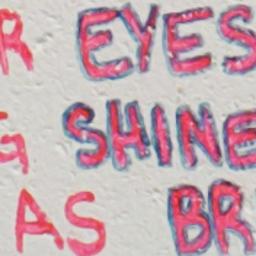 R EYES
G SHINE
AS BR